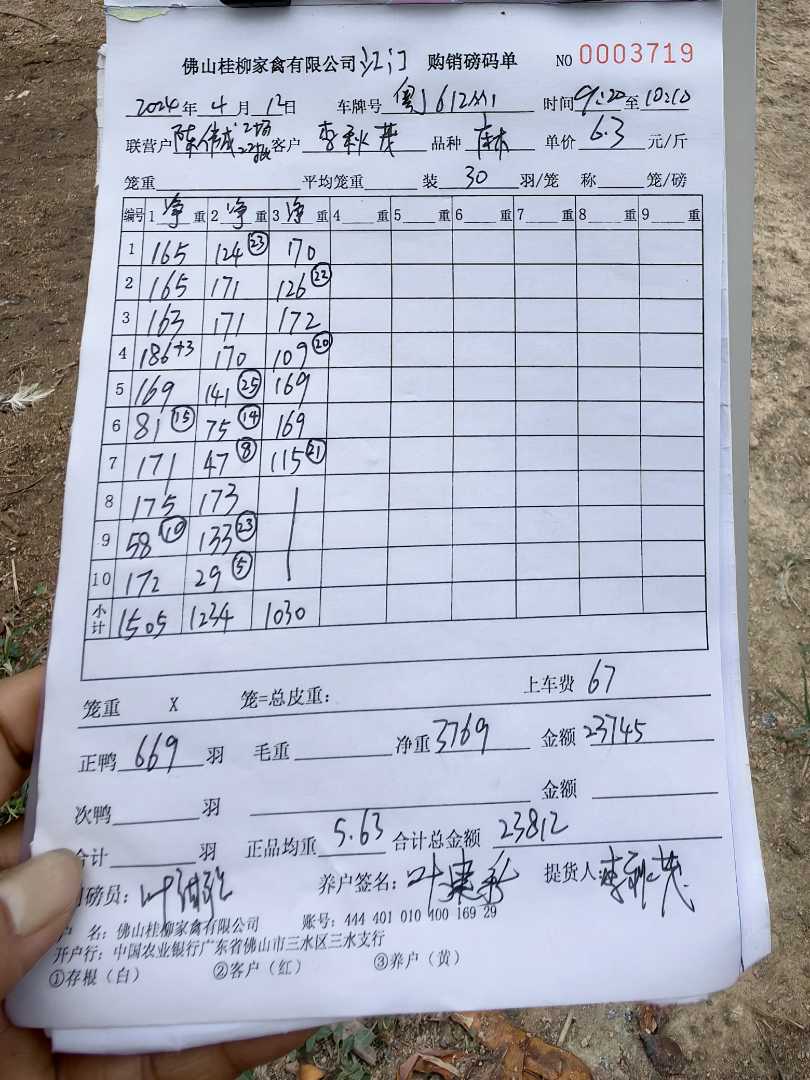 佛山桂柳家禽有限公司 江门 购销磅码单 NO 0003719
2024年4月12日 车牌号 粤J 612 时间 9:20 至 10:10
联营户 陈伟成 客户 李秋茂 品种 麻 单价 6.3 元/斤
笼重 平均笼重 装 30 羽/笼 称 笼/磅
编号 1 净 重 2 净 重 3 净 重 4 重 5 重 6 重 7 重 8 重 9 重
1 165 124 (23) 170
2 165 171 126 (22)
3 163 171 172
4 186+3 170 109 (20)
5 169 141 (25) 169
6 81 (15) 75 (14) 169
7 171 47 (8) 115 (21)
8 175 173
9 58 (10) 133 (23)
10 172 29 (5)
小计 1505 1234 1030
笼重 X 笼=总皮重: 上车费 67
正鸭 669 羽 毛重 净重 3769 金额 23745
次鸭 羽 金额
合计 羽 正品均重 5.63 合计总金额 23812
磅员: 养户签名: 叶 提货人: 李秋茂
户 名: 佛山桂柳家禽有限公司 账号: 444 401 010 400 169 29
开户行: 中国农业银行广东省佛山市三水区三水支行
①存根（白） ②客户（红） ③养户（黄）